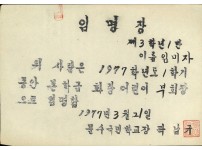 임명장
제3학년1반
이름 임미자
위 사람은 1977학년도 1학기
동안 본학급 회장 어린이 부회장
으로 임명함
1977년 3월 21일
봉수국민학교장